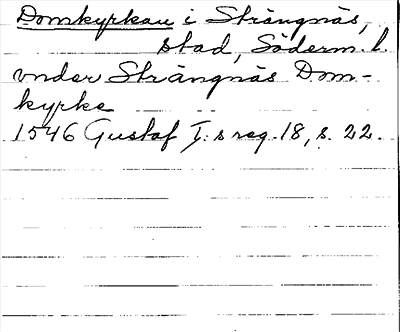 Domkyrkan i Strängnäs,
stad, Söderm. l.
under Strängnäs Dom-
kyrka
1546 Gustaf I:s reg. 18, s. 22.